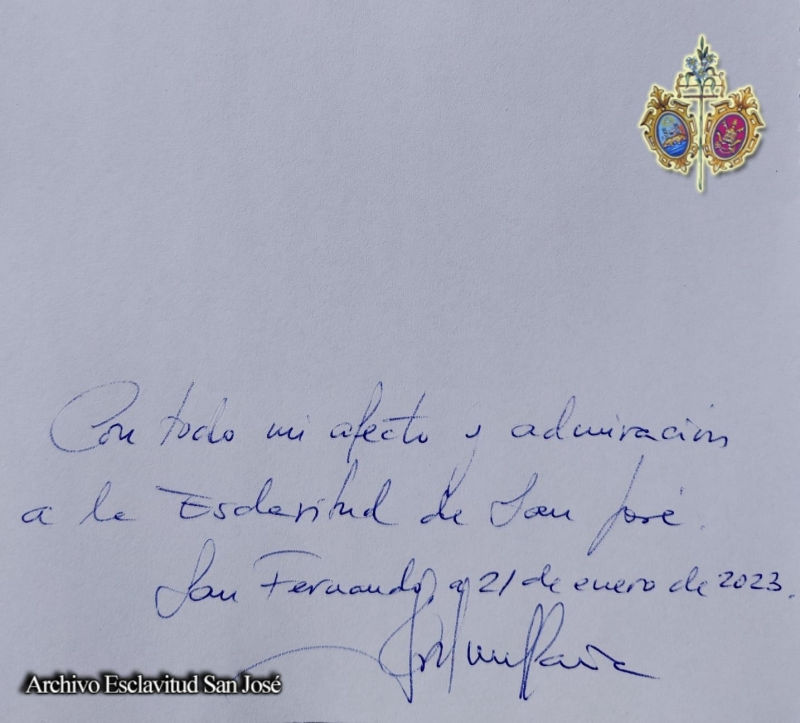 Con todo mi afecto y admiración
a la Esclavitud de San José.
San Fernando, a 21 de enero de 2023.
Archivo Esclavitud San José